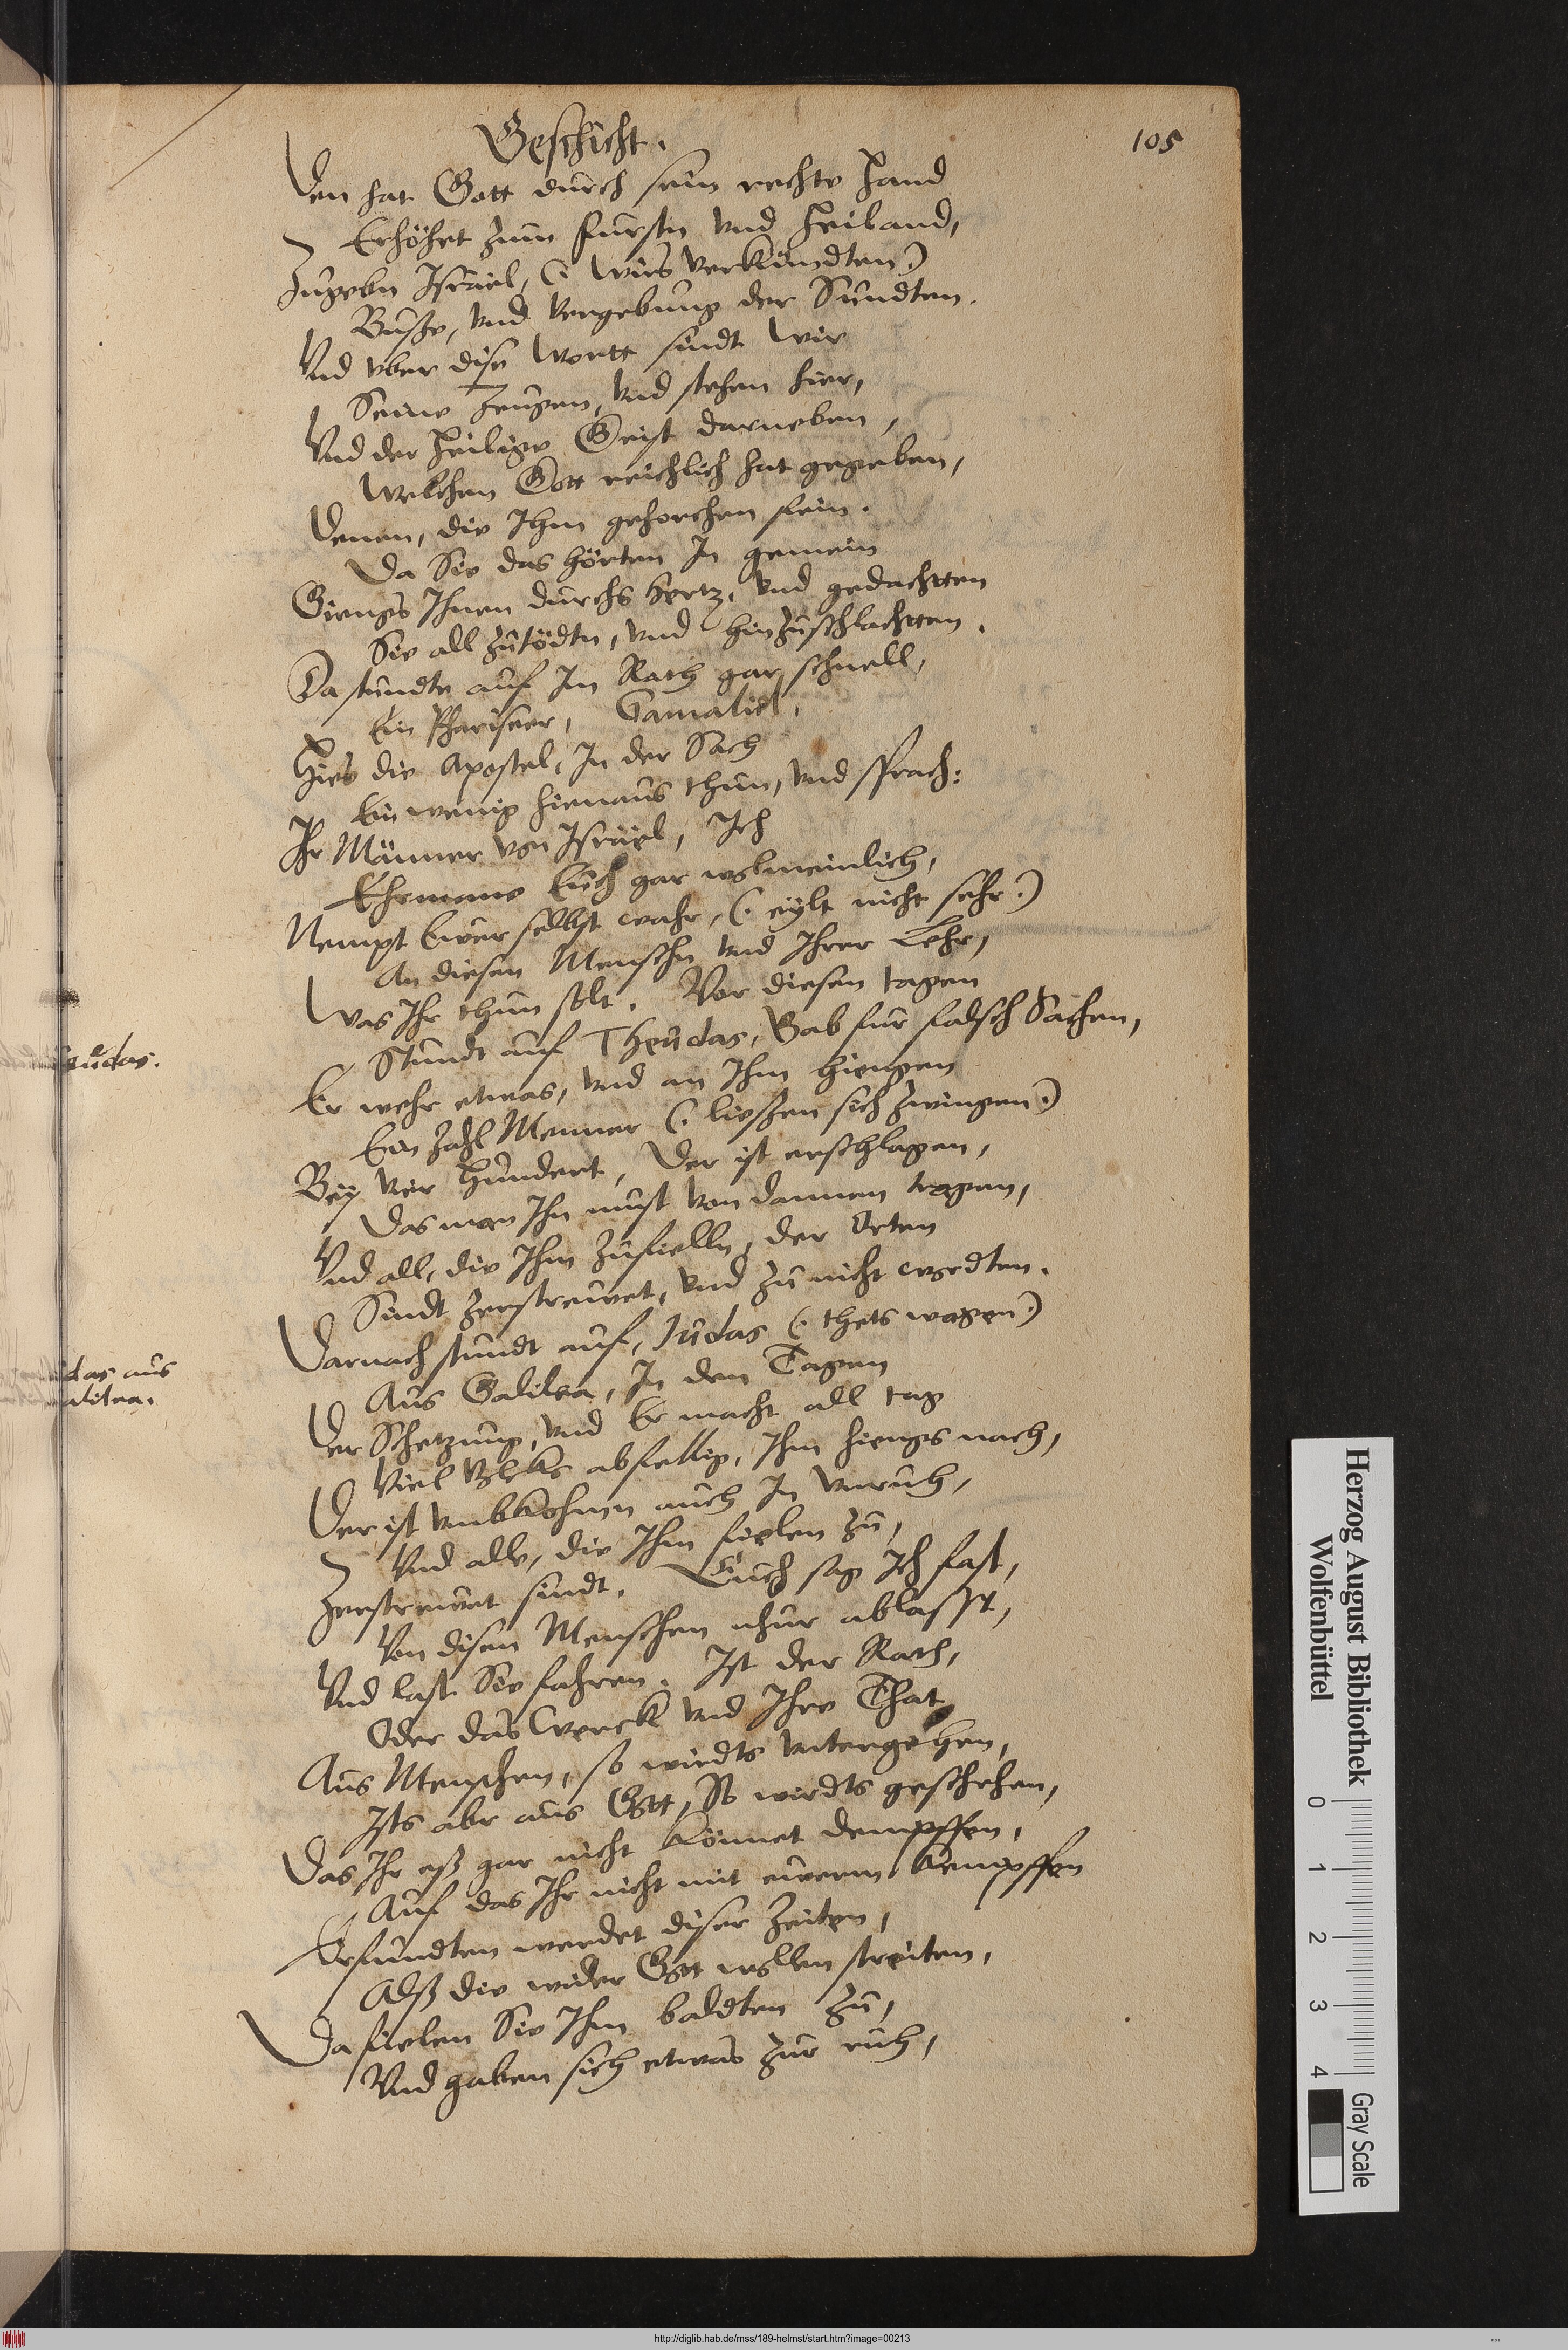 Geschicht.
105
Den hat Gott durch sein rechte Hand
Erhöhet zum fursten vnd Heiland,
Zugebn Israel, (: wirs verkündten:)
Busse, vnd vergebung der Sundten.
Vnd vber dise Wortt sindt wir
Seine Zeugen, vnd stehen hier,
Vnd der Heilige Geist darneben,
Welchen Gott reichlich hat gegeben,
Denen, die Ihm gehorchen fein.
Da Sie das hörten In gemein
Giengs Ihnen durchs hertz, vnd gedachtten
Sie all zutödtn, vnd hin zuschlachtten.
Da stundte auf Im Rath gar schnell,
Ein Phariseer, Gamaliel,
Hies die Apostel, In der Sach
Ein wenig hienaus thun, vnd sprach:
Ihr Männer von Israel, Ich
Ehrmane Euch gar wolmeinlich,
Nempt Ewer selbst wahr, (: eylt nicht sehr:)
An diesen Menschn vnd Ihrer Lehr,
Was Ihr thun solt. Vor diesen tagen
Stundt auf Theudas, Gab fur falsch Sachen,
eudas.
Er wehr etwas, vnd an Ihm hiengen
Ein Zahl Menner (: liessen sich zwingen:)
Bey vier Hundert, Der ist erschlagen,
Das man Ihn must von dannen tragen,
Vnd all, die Ihm zufielln, der Orten
Sindt zerstrewet, vnd zu nicht wordten.
Darnach stundt auf, Judas (: thets wagen:)
das aus
Aus Galilea, In den Tagen
alilea.
Der Schetzung, vnd Er macht all tag
Viel Volcks abfellig, Ihm hiengs nach,
Der ist vmbkohmen auch In vnruh,
Vnd alle, die Ihm fielen zu,
Zerstrewet sindt. Euch sag Ich fast,
Von disen Menschen nhur ablasst,
Vnd last Sie fahren. Ist der Rath,
Oder das Werck vnd Ihre That
Aus Menschen, so wirdts vntergehen,
Ists abr aus Gott, So wirdts geschehen,
Das Ihr ess gar nicht könnet dempffen,
Auf das Ihr nicht mit ewerm kempffen
Erfundten werdet diser Zeiten,
Alss die wider Gott wollen streiten,
Da fielen Sie Ihm baldten zu,
Vnd gaben sich etwas zur ruh,
Herzog August Bibliothek
Wolfenbüttel
0 1 2 3 4
Gray Scale
http://diglib.hab.de/mss/189-helmst/start.htm?image=00213